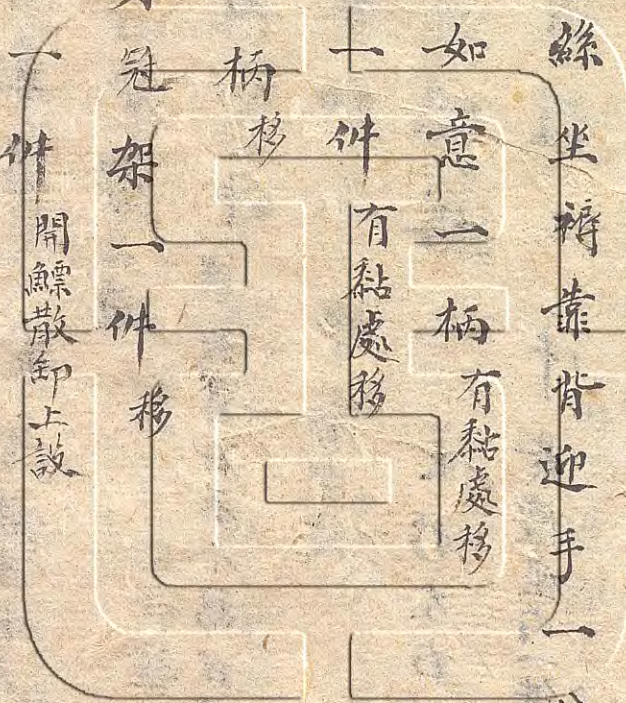 絲坐褥靠背迎手一
如意一柄有黏處移
一件有黏處移
柄移
冠架一件移
一件開鰾散卸上設